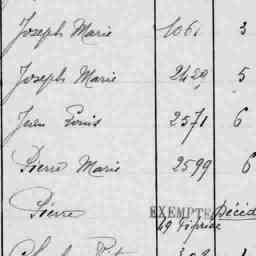 Joseph Marie 1061 3
Joseph Marie 2429 5
Jean Louis 2571 6
Pierre Marie 2599 6
Pierre EXEMPTÉ Décéd